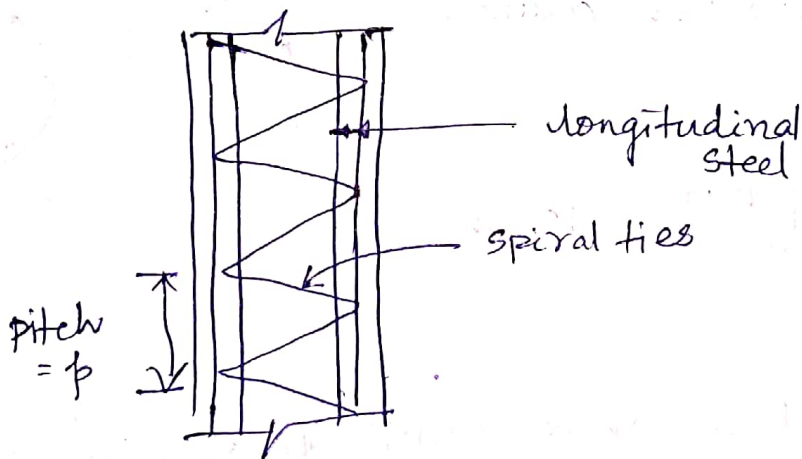 longitudinal
steel
spiral ties
pitch
= p